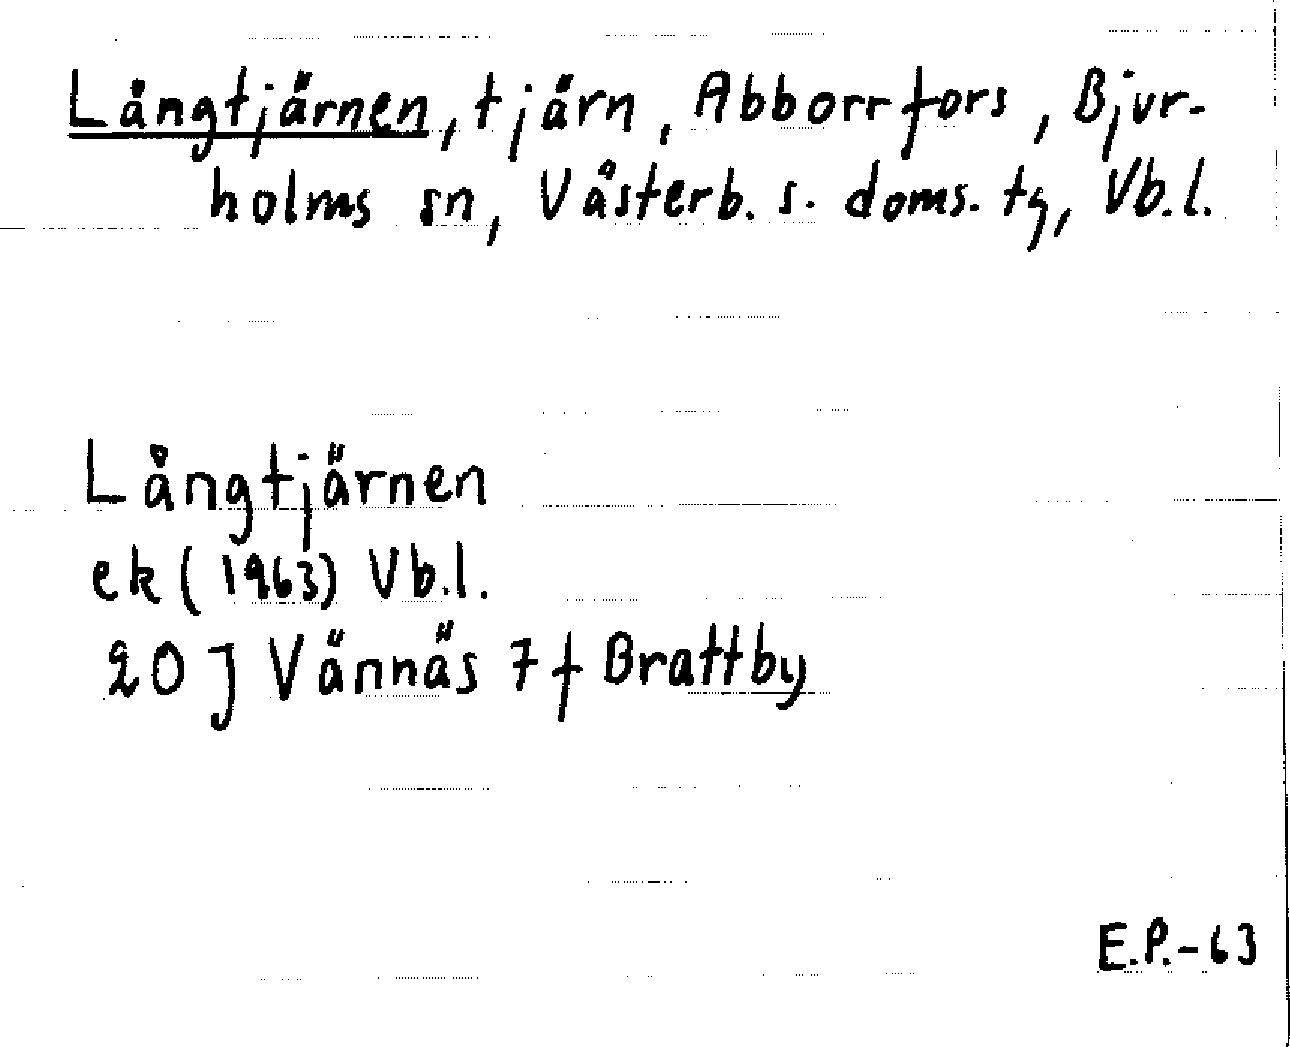 Långtjärnen, tjärn, Abborrfors, Bjur-
holms sn, Västerb. s. doms. tg, Vb.l.
Långtjärnen
ek (1963) Vb.l.
20 J Vännäs 7 f Brattby
E.P.-63